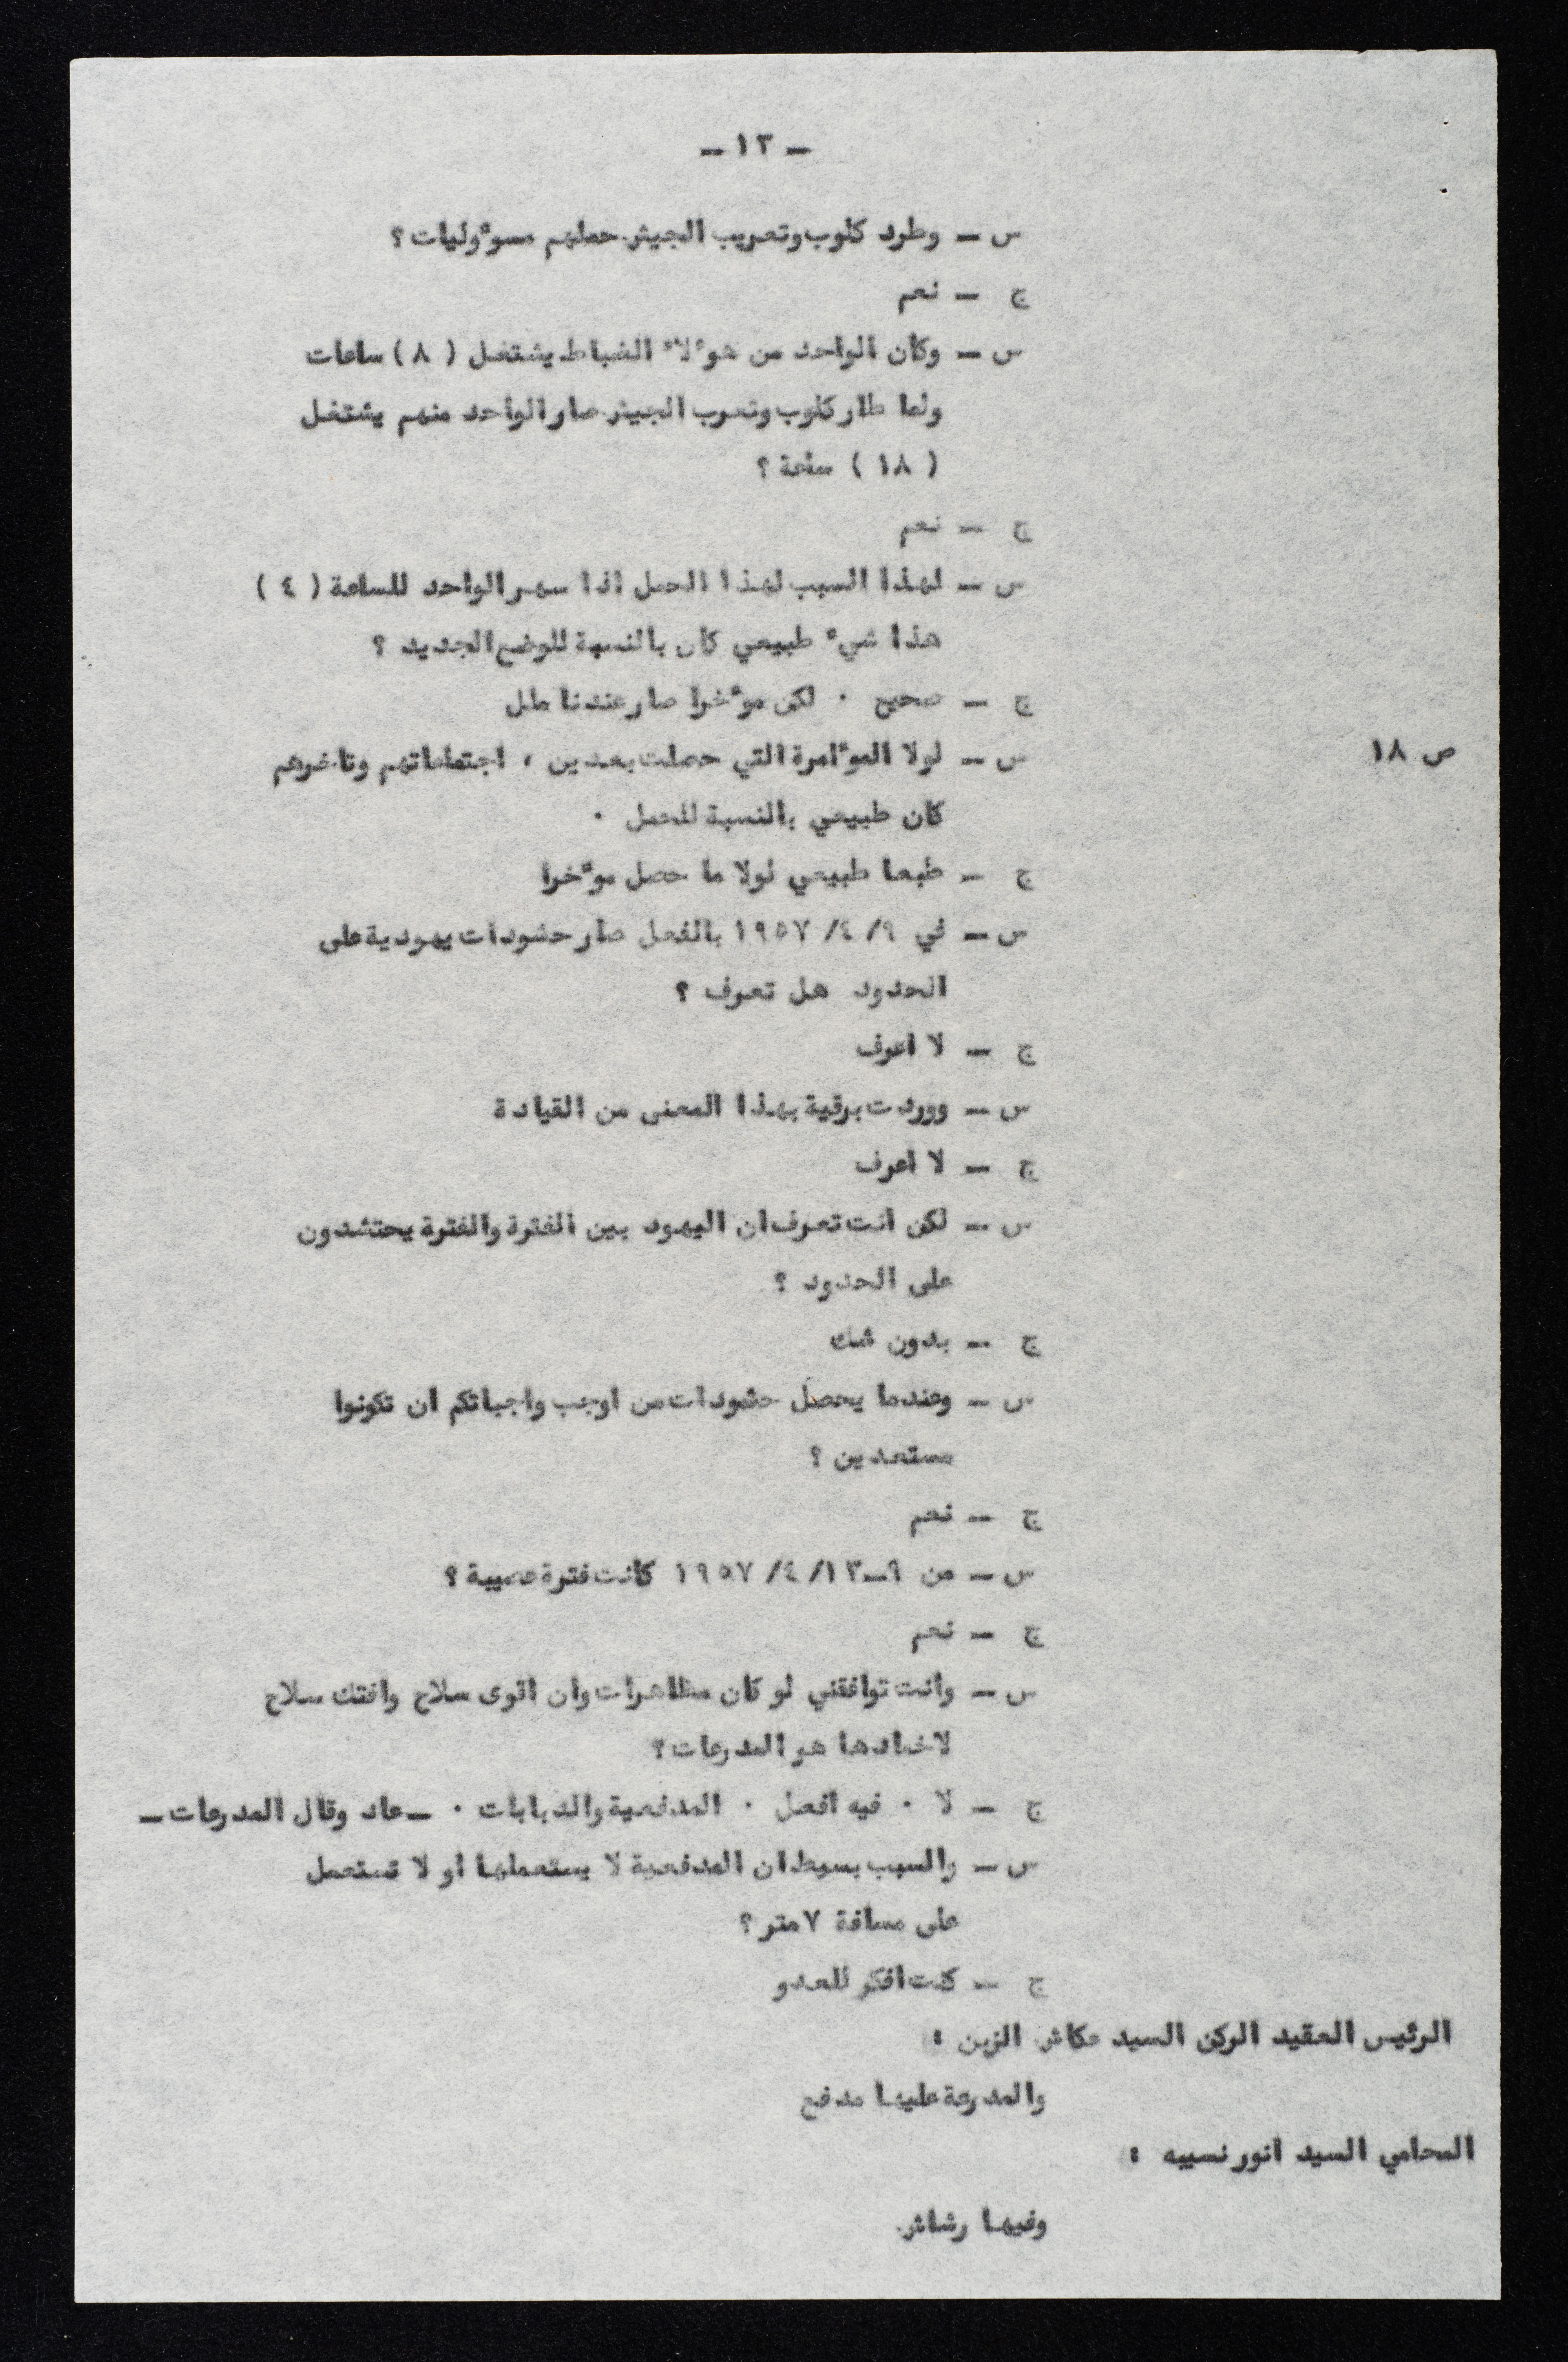 — ١٣ —
س — وطرد كلوب وتعريب الجيش حملهم مسوءوليات ؟
ج — نعم
س — وكان الواحد من هوءلاء الضباط يشتغل ( ٨ ) ساعات
ولما طار كلوب وتعرب الجيش صار الواحد منهم يشتغل
( ١٨ ) ساعة ؟
ج — نعم
س — لهذا السبب لهذا العمل اذا سهر الواحد للساعة ( ٤ )
هذا شيء طبيعي كان بالنسبة للوضع الجديد ؟
ج — صحيح ٠ لكن موءخرا صار عندنا ملل
ص ١٨
س — لولا الموءامرة التي حصلت بعدين ، اجتماعاتهم وتاخرهم
كان طبيعي بالنسبة للعمل ٠
ج — طبعا طبيعي لولا ما حصل موءخرا
س — في ٩/ ٤/ ١٩٥٧ بالفعل صار حشودات يهودية على
الحدود هل تعرف ؟
ج — لا اعرف
س — ووردت برقية بهذا المعنى من القيادة
ج — لا اعرف
س — لكن انت تعرف ان اليهود بين الفترة والفترة يحتشدون
على الحدود ؟
ج — بدون شك
س — وعندما يحصل حشودات من اوجب واجباتكم ان تكونوا
مستعدين ؟
ج — نعم
س — من ٩—١٣/ ٤/ ١٩٥٧ كانت فترة عصيبة ؟
ج — نعم
س — وانت توافقني لو كان مظاهرات وان اقوى سلاح وافتك سلاح
لاخمادها هو المدرعات ؟
ج — لا ٠ فيه افضل ٠ المدفعية والدبابات ٠ — عاد وقال المدرعات —
س — والسبب بسيط ان المدفعية لا يستعملها او لا تستعمل
على مسافة ٧ متر ؟
ج — كنت افكر للعدو
الرئيس العقيد الركن السيد عكاش الزبن :
والمدرعة عليها مدفع
المحامي السيد انور نسيبه :
وفيها رشاش